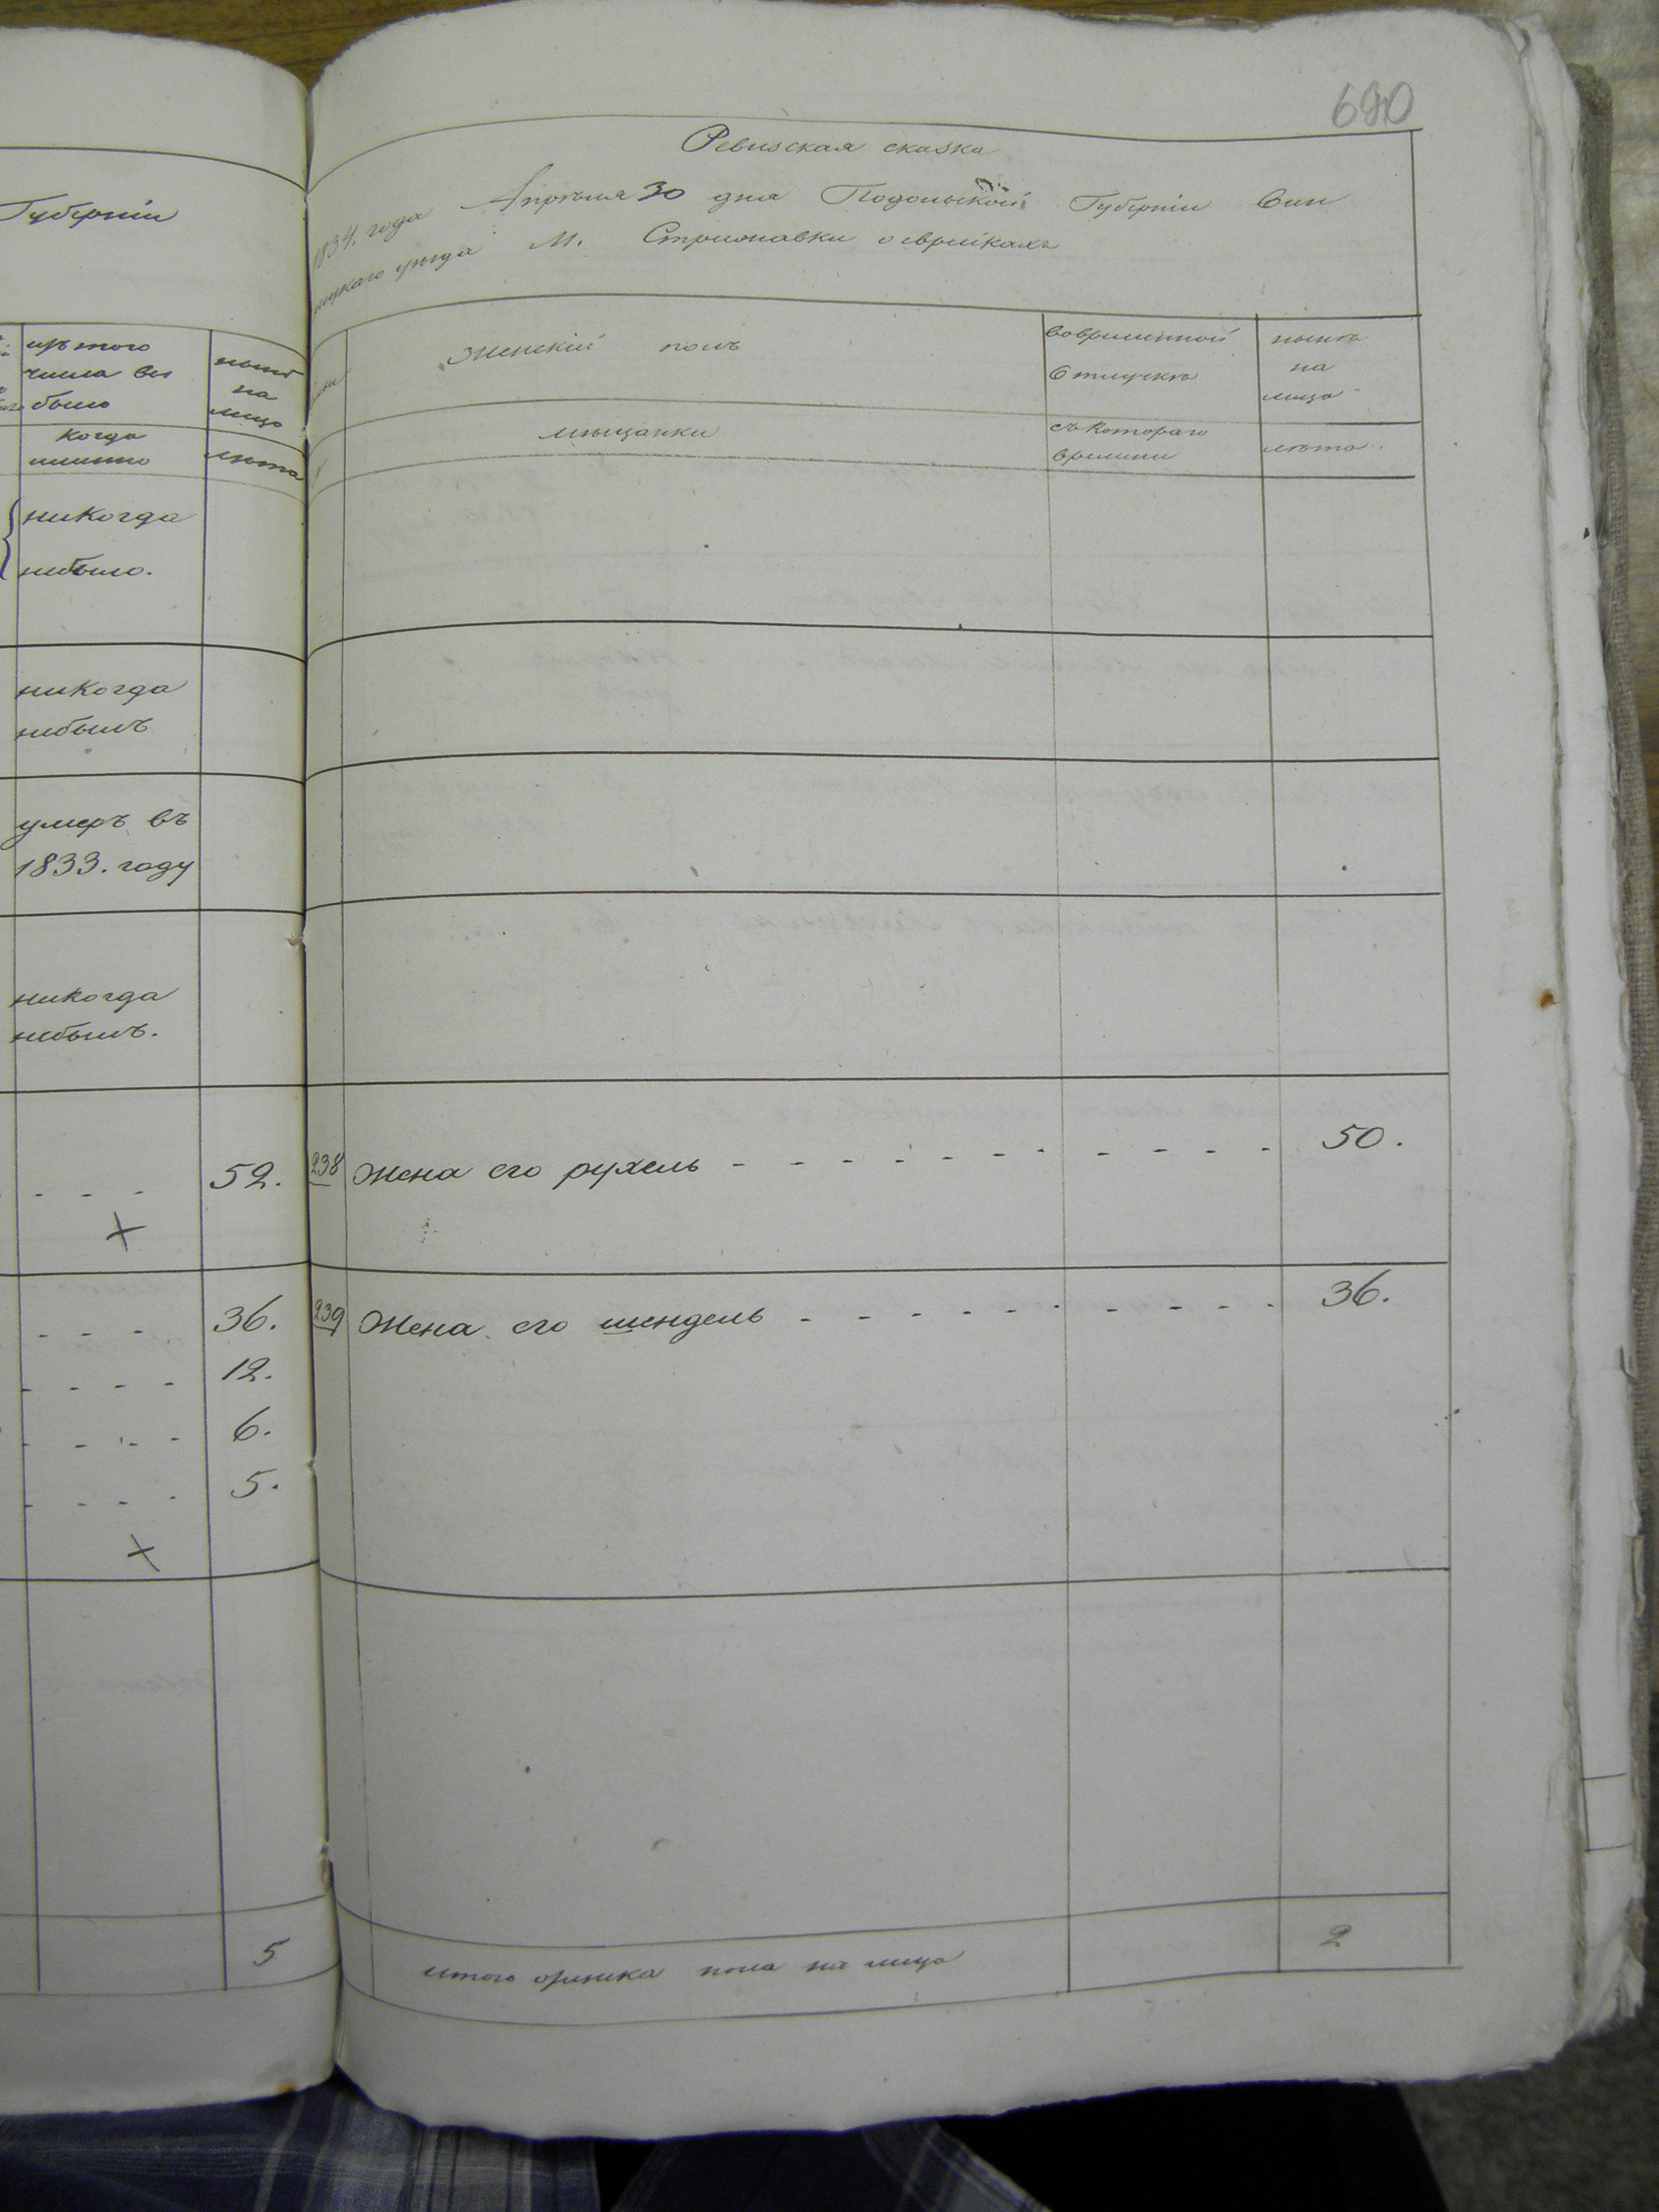 Губернiи
изъ того
числа вы
было
ныне
на
лицо
когда
именно
лета
никогда
небыло.
никогда
небылъ
умеръ въ
1833. году
никогда
небылъ.
52.
36.
12.
6.
5.
5
690
Ревизская сказка
1834. года Апреля 30 дня Подольской Губернiи Вин
ницкаго уезда М. Стрижавки о еврейкахъ
Женскiй полъ
вовременной
отлучке
ныне
на
лицо
мещанки
съ котораго
времени
лета
238 Жена его рухель 50.
239 Жена его шендель 36.
итого женска пола на лицо 2